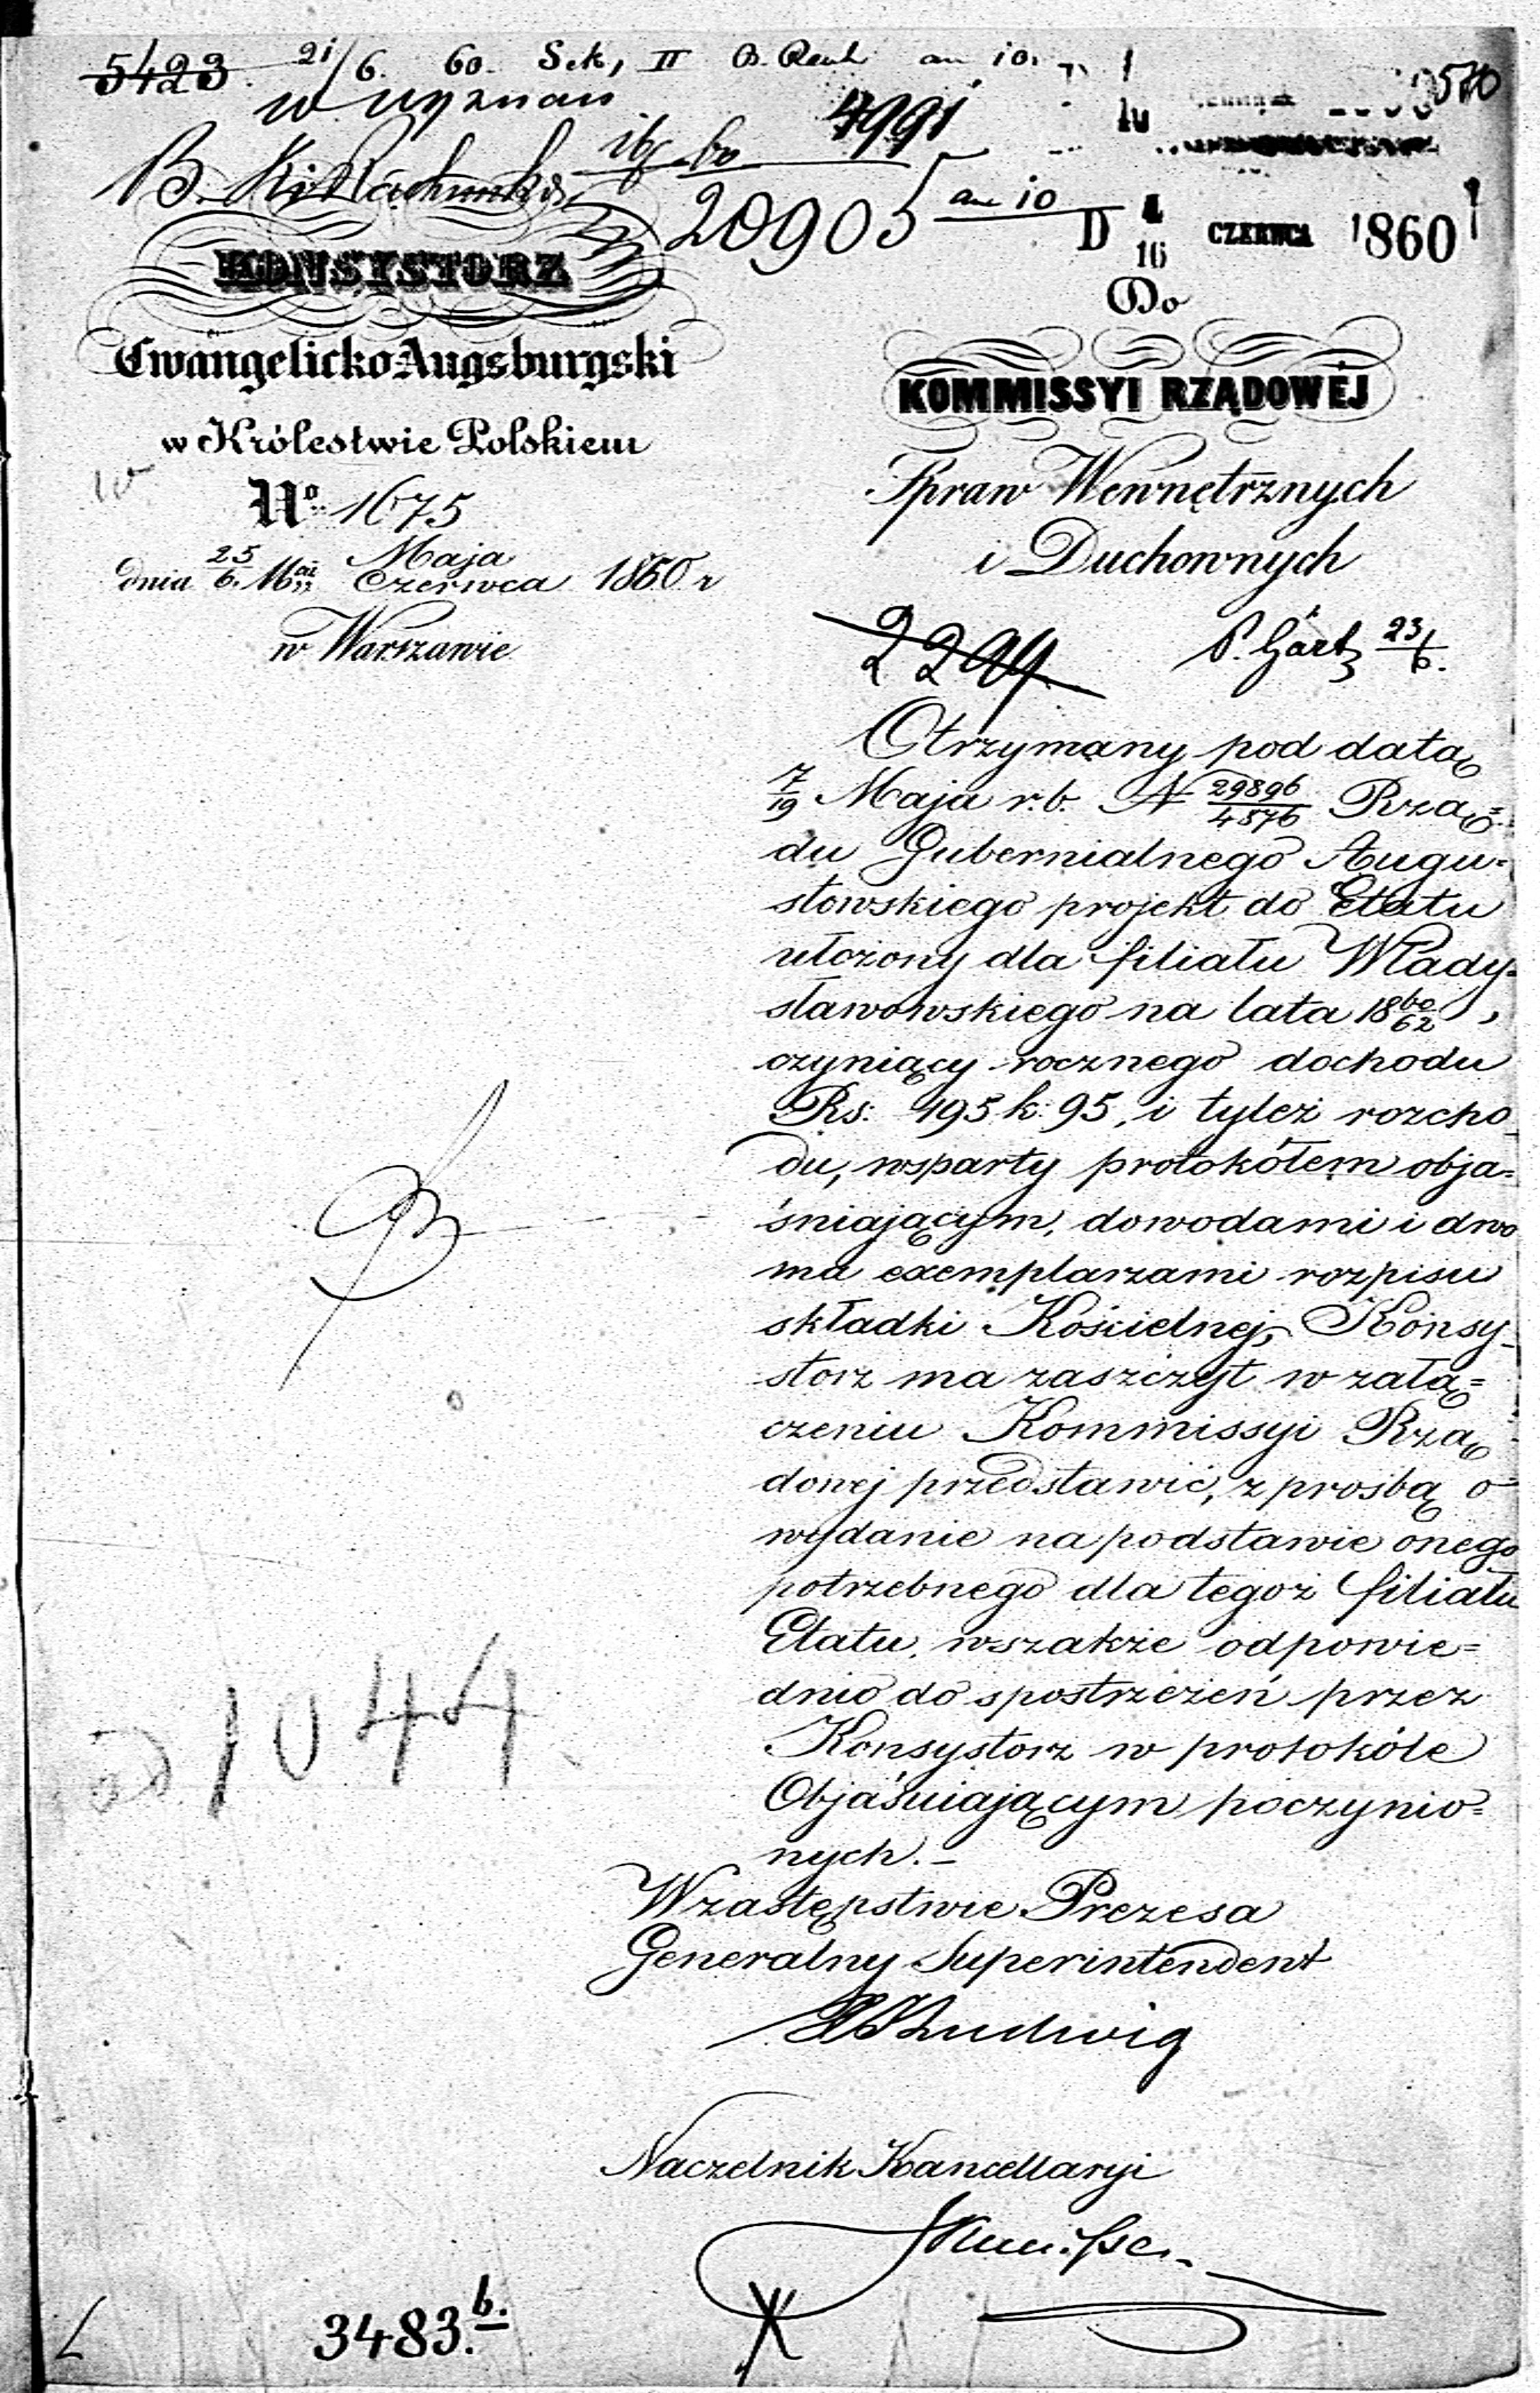 5423. 21/6. 60. Sek, II an 10.
570
4991
20905 an 10
D 4/16 CZERWCA 1860
KONSYSTORZ
Ewangelicko Augsburgski
w Królestwie Polskiem
No 1675
dnia 25/6. Maja Czerwca 1860 r
w Warszawie
Do
KOMMISSYI RZĄDOWÉJ
Spraw Wewnętrznych
i Duchownych
2294
23/6.
Otrzymany pod datą
7/19 Maja r.b. N 29896/4876 Rzą=
du Gubernialnego Augu=
stowskiego projekt do Etatu
ułożony dla filiału Włady=
sławowskiego na lata 1860/62,
czyniący rocznego dochodu
Rs: 495 k: 95, i tyleż rozcho_
du, wsparty protokółem obja=
śniającym, dowodami i dwo
ma exemplarzami rozpisu
składki Kościelnej, Konsy_
storz ma zaszczyt w załą=
czeniu Kommissyi Rzą
dowej przedstawić, z prośbą o
wydanie na podstawie onego
potrzebnego dla tegoż filiału
Etatu, wszakże odpowie=
dnio do spostrzeżeń przez
Konsystorz w protokóle
Objaśniającym poczynio=
nych. –
W zastępstwie Prezesa
Generalny Superintendent
Ludwig
Naczelnik Kancellaryi
ad 1044
3483.b.